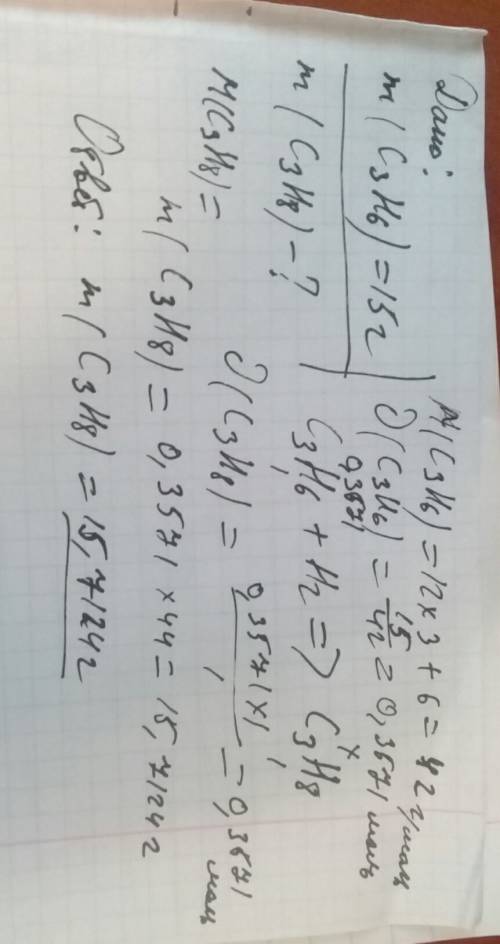 Дано:
m(C₃H₆)=15г
m(C₃H₈)-?
M(C₃H₆)=12×3+6=42 г/моль
∂(C₃H₆)=15/42=0,3571 моль
0,3571 x
C₃H₆+H₂=>C₃H₈
1 1
M(C₃H₈)=
∂(C₃H₈)=0,3571×1/1=0,3571 моль
m(C₃H₈)=0,3571×44=15,7124г
Ответ: m(C₃H₈)=15,7124г